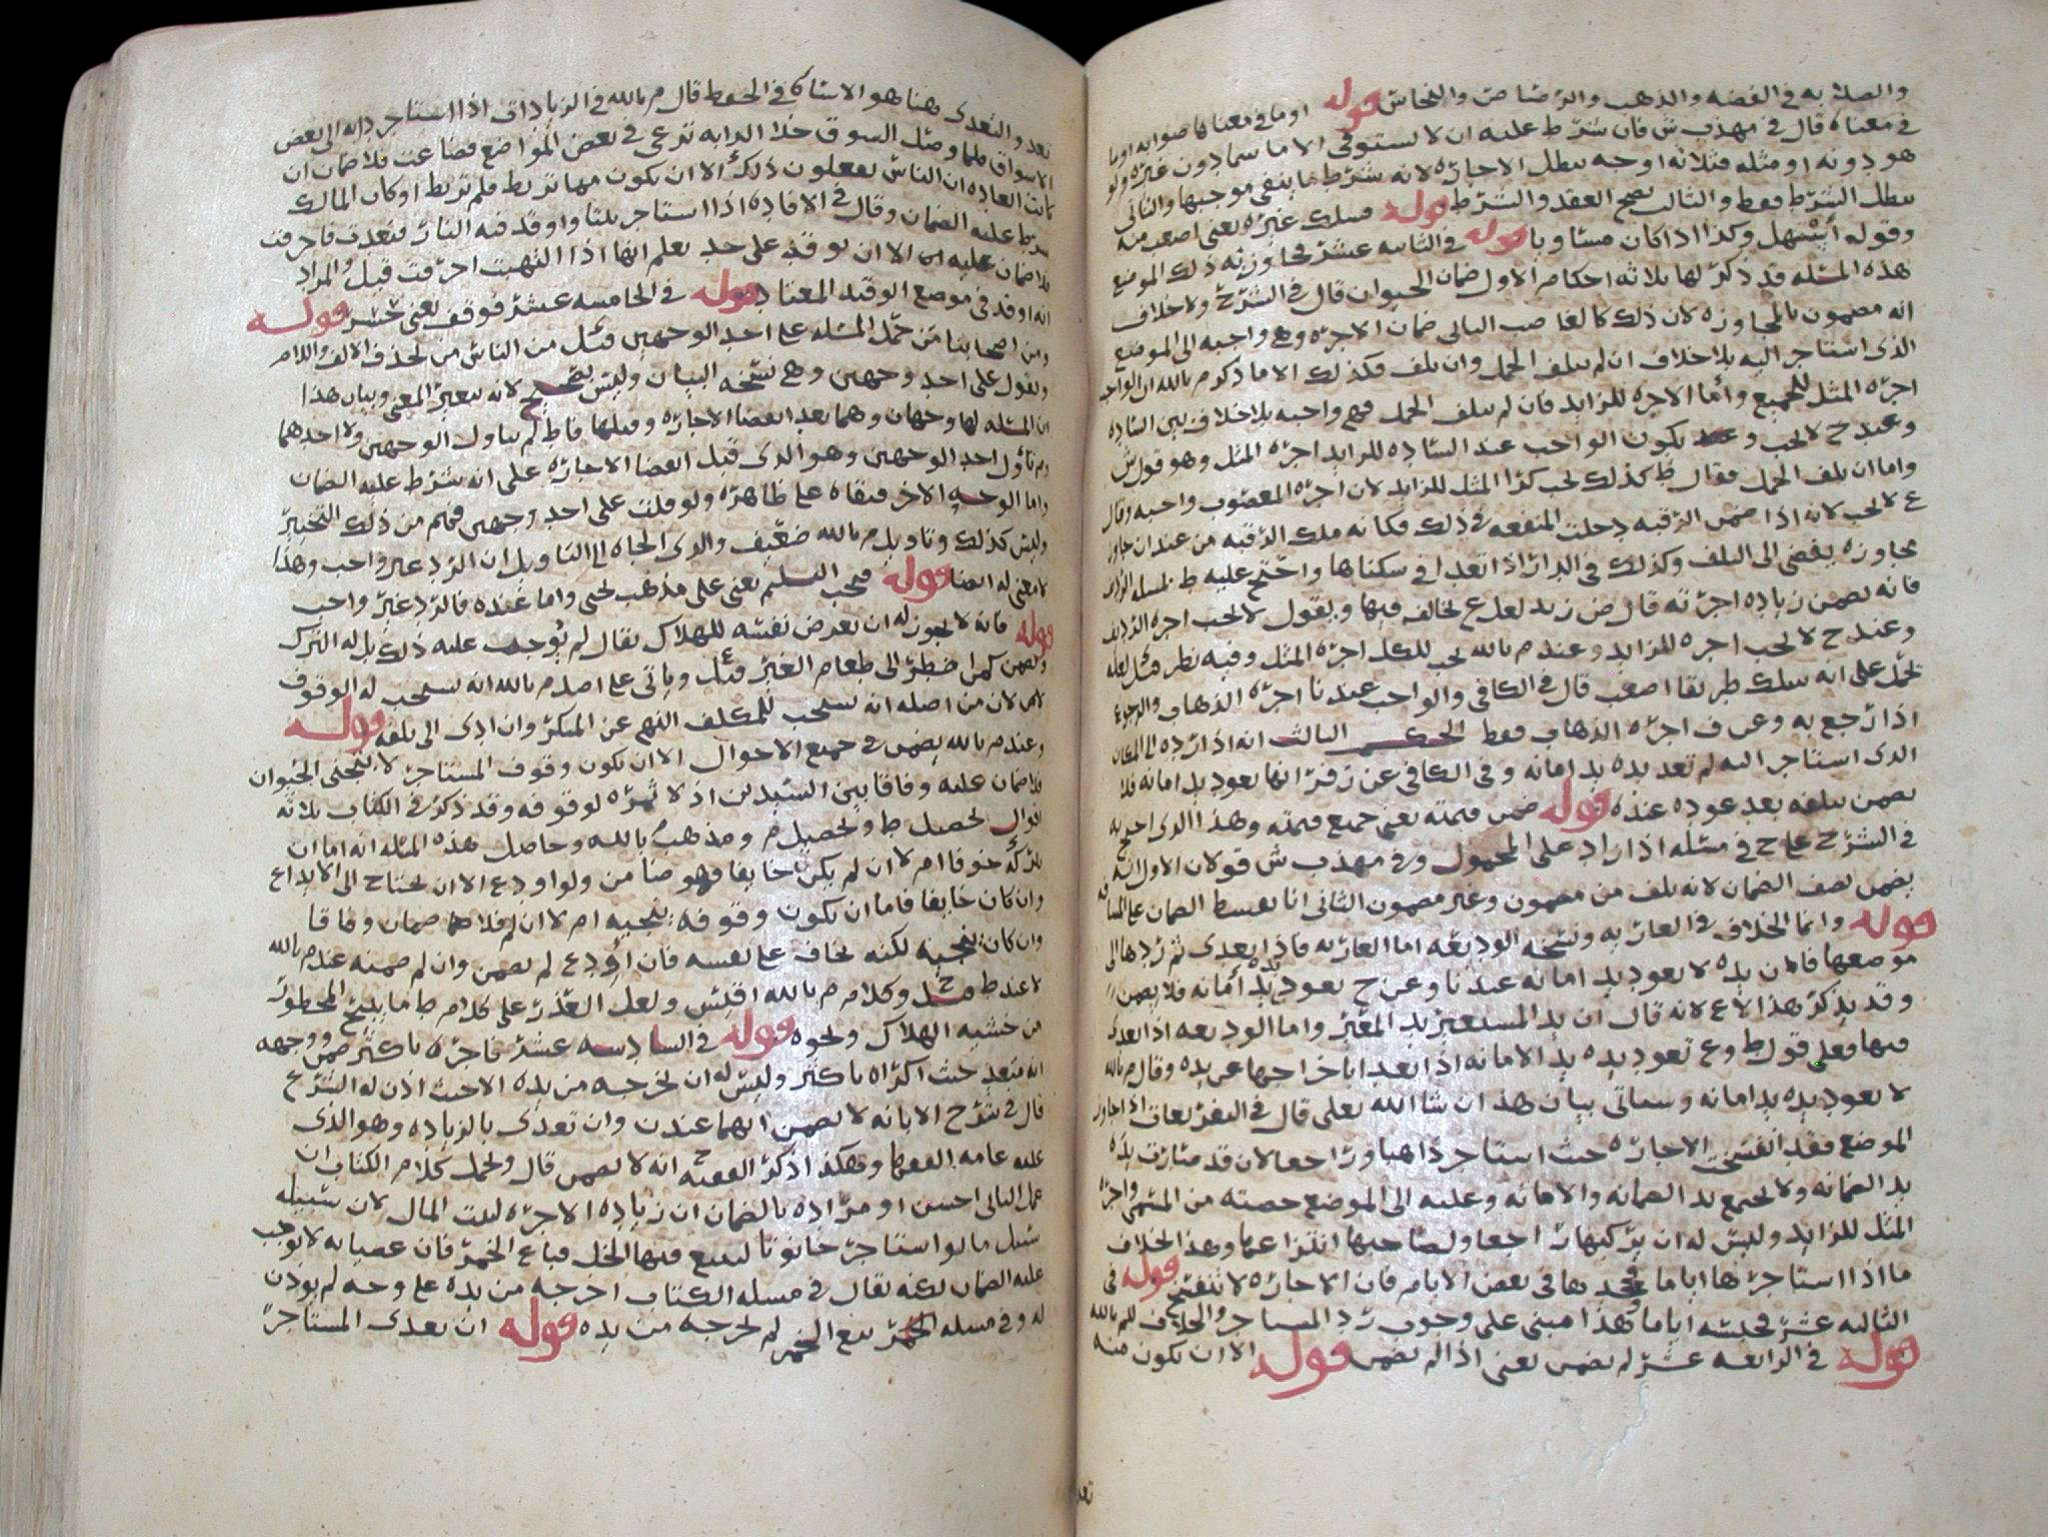 والصلابه في الفضه والذهب والرصاص والنحاس قوله او ما في معناها صوابه او ما
في معناه قال في مهذب ش فان شرط عليه ان لا يستوفي الا ما سما دون غيره ولو
هو دونه او مثله فثلاثه اوجه يبطل الاجاره لانه شرط ما ينفي موجبها والثاني
يبطل الشرط فقط والثالث يصح العقد والشرط قوله فسلك غيره يعني اصعب منه
وقوله اسهل وكذا اذا كان مساويا قوله في الثانيه عشر مجاوزته ذلك الموضع
هذه المسله قد ذكر لها ثلاثه احكام الاول ضمان الحيوان قال في الشرح ولا خلاف
انه مضمون بالمجاوزه لان ذلك كالغاصب الثاني ضمان الاجره وهي واجبه الى الموضع
الذي استاجر اليه بلا خلاف ان لم يتلف الحمل وان تلف فكذلك الا ما ذكره م بالله ان الواجب
اجره المثل للجميع واما الاجره للزايد فان لم يتلف الحمل فهي واجبه بلا خلاف بين الساده
وعند ح لا يجب و يكون الواجب عند الساده للزايد اجره المثل وهو قول ش
واما ان تلف الحمل فقال ط كذلك يجب كرا المثل للزايد لان اجره المغصوب واجبه وقال
ع لا يجب لانه اذا ضمن الرقبه دخلت المنفعه في ذلك فكانه ملك الرقبه من عند ان جاوز
مجاوزه يفضي الى التلف وكذلك في الدار اذا تعدا في سكناها واحتج عليه ط بمسله
فانه يضمن زياده اجرته قال ض زيد لعل ع يخالف فيها ويقول لا يجب اجره الزايد
وعند ح لا يجب اجره للزايد وعند م بالله يجب للكل اجره المثل وفيه نظر قيل لعله
يحمل على انه سلك طريقا اصعب قال في الكافي والواجب عندنا اجره الذهاب والرجوع
اذا رجع به وعن ف اجره الذهاب فقط الحكم الثالث انه اذا رده الى المكان
الذي استاجر اليه لم تعد يده يد امانه وفي الكافي عن زفر انها يعود يد امانه فلا
يضمن بتلفه بعد عوده عنده قوله ضمن قيمته يعني جميع قيمته وهذا الذي احتج به
في الشرح على ح في مسئله اذا زاد على المحمول وفي مهذب ش قولان الاول انه
يضمن نصف الضمان لانه تلف من مضمون وغير مضمون الثاني انا نقسط الضمان على المسافه
قوله وانما الخلاف في العاريه ونسخه الوديعه اما العاريه فاذا تعدى ثم ردها الى
موضعها فان يده لا يعود يد امانه عندنا وعن ح تعود يده يد امانه فلا يضمن
وقد يذكر هذا لا ع لانه قال ان يد المستعير يد المعير واما الوديعه اذا تعدى
فيها فعلى قول ط وع تعود يده يد الامانه اذا تعدا باخراجها عن يده وقال م بالله
لا يعود يده يد امانه وسياتي بيان هذا ان شا الله تعلى قال في التفريعات اذا جاوز
الموضع فقد انفسخت الاجاره حيث استاجر ذاهبا وراجعا لان قد صارت يده
يد الضمانه ولا يجمع يد الضمانه والامانه وعليه الى الموضع حصته من المسمى واجره
المثل للزايد وليس له ان يركبها راجعا ولصاحبها انتزاعها وهذا بخلاف
ما اذا استاجرها اياما فجحدها في بعض الايام فان الاجاره لا تنفسخ قوله في
الثالثه عشر فحبسه اياما هذا مبني على وجوب رد المستاجر والخلاف للم بالله
قوله في الرابعه عشر لم يضمن يعني اذا لم يضمن قوله الا ان تكون منه
تعد
تعد والتعدي هنا هو الاستاه في الحفظ قال م بالله في الزيادات اذا استاجر دابه الى بعض
الاسواق فلما وصل السوق خلا الدابه ترعى في بعض المواضع فضاعت فلا ضمان ان
كانت العاده ان الناس يفعلون ذلك الا ان يكون مما تربط فلم تربط او كان المالك
شرط عليه الضمان وقال في الافاده اذا استاجر بيتا واوقد فيه النار فتعدت فاحرقت
فلا ضمان عليه الا ان توقد على حد يعلم انها اذا التهبت احرقت قيل والمراد
انه اوقد في موضع الوقيد المعتاد قوله في الخامسه عشر فوقف يعني خسر قوله
ومن اصحابنا من حمل المسله على احد الوجهين قيل من الناس من يحذف الالف واللام
ويقول على احد وجهين وهي نسخه البيان وليس بصحيح لانه يتغير المعنى وبيان هذا
ان المسله لها وجهان وهما بعد انقضا الاجاره وقبلها فا ط لم يتاول الوجهين ولا احدهما
وم تاول احد الوجهين وهو الذي قبل انقضا الاجاره على انه شرط عليه الضمان
واما الوجه الاخر فبقاه على ظاهره ولو قلت على احد وجهين فهم من ذلك التخيير
وليس كذلك وتاويل م بالله ضعيف والذي الجاه الى التاويل ان الرد غير واجب وهذا
لا معنى له ايضا قوله فيجب التسلم يعني على مذهب يحيى واما عنده فالرد غير واجب
قوله فانه لا يجوز له ان يعرض نفسه للهلاك يقال لم يوجب عليه ذلك بل له الترك
ويضمن كمن اضطر الى طعام الغير قيل وياتي على اصل م بالله انه يستحب له الوقوف
لان من اصله انه يستحب للمكلف النهي عن المنكر وان ادى الى تلفه قوله
وعند م بالله يضمن في جميع الاحوال الا ان تكون وقوف المستاجر لا ينجي الحيوان
فلا ضمان عليه وفاقا بين السيدين اذ لا ثمره لوقوفه وقد ذكر في الكتاب ثلاثه
اقوال تحصيل ط وتحصيل م ومذهب م بالله وحاصل هذه المسله انه اما ان
يتركه خوفا ام لا ان لم يكن خايفا فهو ضامن ولو اودع الا ان يحتاج الى الايداع
وان كان خايفا فاما ان تكون وقوفه ينجيه ام لا ان لم فلا ضمان وفاقا
وان كان ينجيه لكنه يخاف على نفسه فان اودع لم يضمن وان لم ضمنه عند م بالله
لا عند ط وكلام م بالله اقيس ولعل العذر على كلام ط ما يبيح المحظور
من خشيه الهلاك ونحوه قوله في السادسه عشر فاجره باكثر ضمن ووجهه
انه متعد حيث اكراه باكثر وليس له ان يخرجه من يده الا حيث اذن له الشرع
قال في شرح الابانه لا يضمن ايهما عندن وان تعدى بالزياده وهو الذي
عليه عامه الفقها وهكذا ذكر الفقيه ح انه لا يضمن قال ويحمل كلام الكتاب ان
عمل الثاني احسن او مراده بالضمان ان زياده الاجره لبيت المال لان سبيله
سبيل ما لو استاجر حانوتا ليبيع فيها الخل فباع الخمر فان عصيانه لا يوجب
عليه الضمان لكنه يقال في مسله الكتاب اخرجه من يده على وجه لم يوذن
له وفي مسله الخمر ببيع الخمر لم يخرجه من يده قوله ان تعدى المستاجر